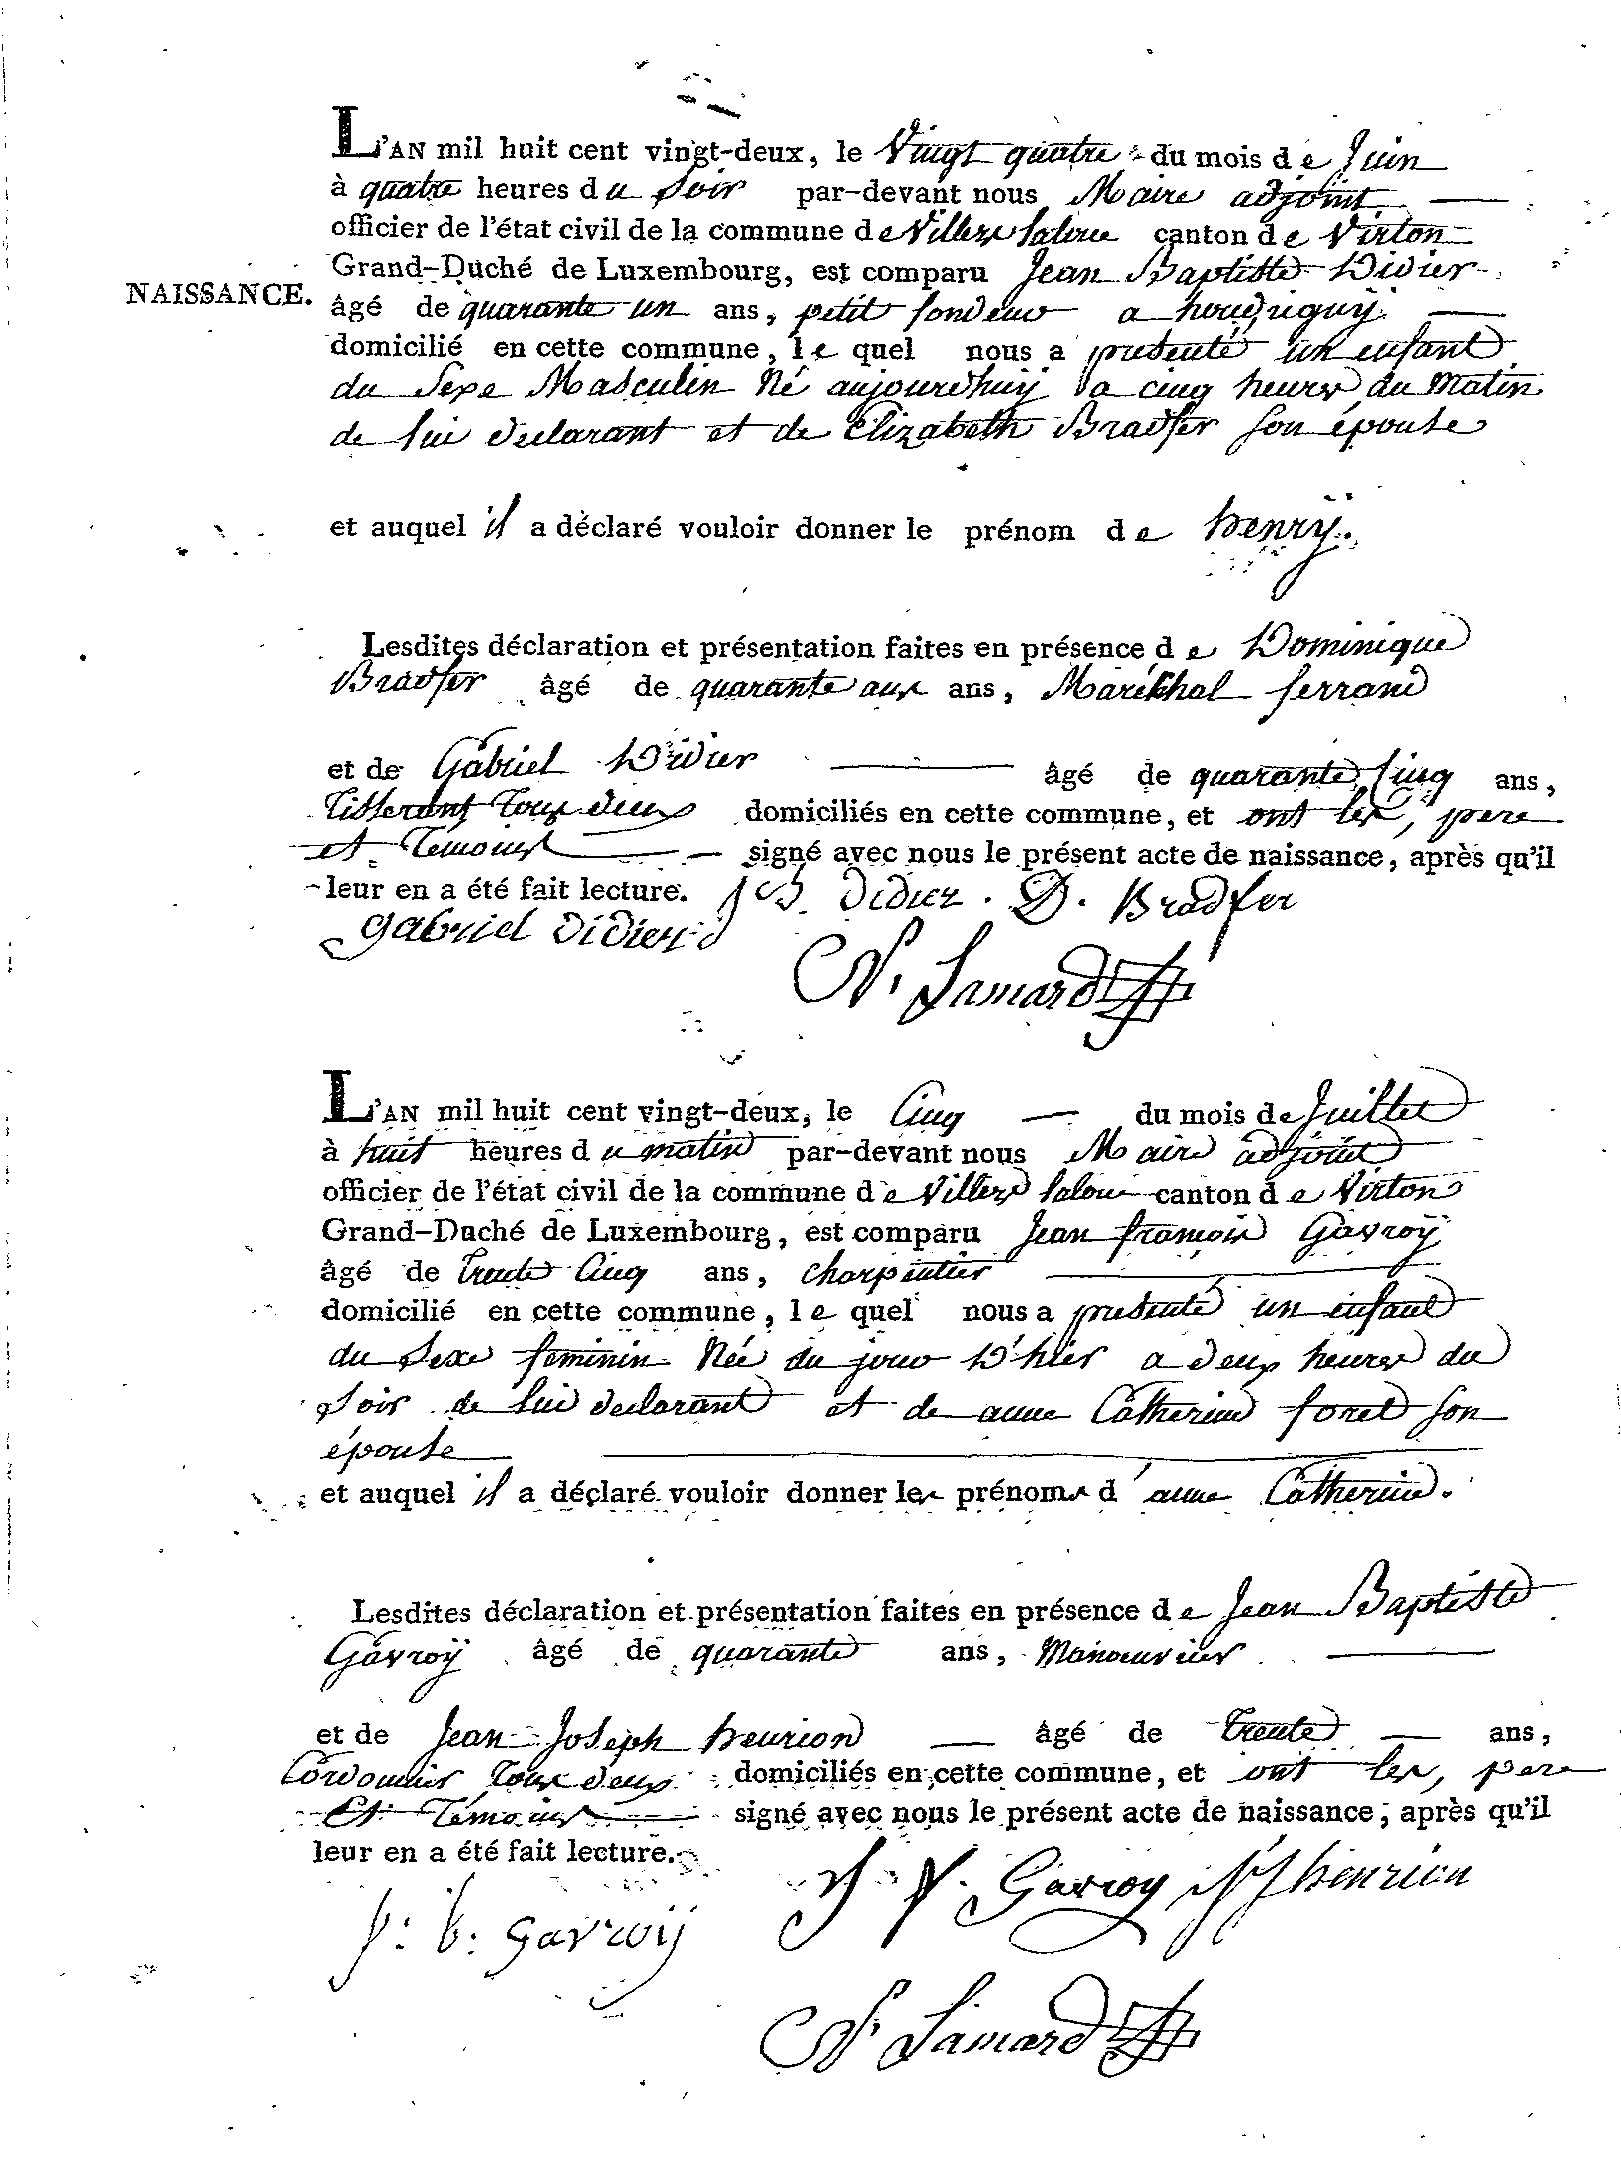 L'AN mil huit cent vingt-deux, le Vingt quatre du mois de Juin
à quatre heures du Soir par-devant nous Maire adjoint
officier de l'état civil de la commune de Villers Laloue canton de Virton
Grand-Duché de Luxembourg, est comparu Jean Baptiste Didier
NAISSANCE. âgé de quarante un ans, petit fondeur a houdrigny
domicilié en cette commune, le quel nous a présenté un enfant
du Sexe Masculin Né aujourdhuy a cinq heures du Matin
de lui déclarant et de Elizabeth Bradfer son épouse
et auquel il a déclaré vouloir donner le prénom de henrÿ.
Lesdites déclaration et présentation faites en présence de Dominique
Bradfer âgé de quarante aux ans, Maréchal ferrand
et de Gabriel Didier âgé de quarante Cinq ans,
Tisserant Tous deux domiciliés en cette commune, et ont les, pere
et Temoins signé avec nous le présent acte de naissance, après qu'il
leur en a été fait lecture. J B Didier. D. Bradfer
gabriel Didier
N. Lamard
L'AN mil huit cent vingt-deux, le Cinq du mois de Juillet
à huit heures du matin par-devant nous Maire adjoint
officier de l'état civil de la commune de Villers Laloue canton de Virton
Grand-Duché de Luxembourg, est comparu Jean françois Gavroÿ
âgé de Trente Cinq ans, charpentier
domicilié en cette commune, le quel nous a présenté un enfant
du Sexe feminin Née du jour D'hier a deux heures du
Soir de lui declarant et de anne Catherine foret son
épouse
et auquel il a déclaré vouloir donner les prénoms d'anne Catherine.
Lesdites déclaration et présentation faites en présence de Jean Baptiste
Gavroÿ âgé de quarante ans, Manoeuvrier
et de Jean Joseph henrion âgé de Trente ans,
Cordonnier Tous deux domiciliés en cette commune, et ont les, pere
Et Témoins signé avec nous le présent acte de naissance, après qu'il
leur en a été fait lecture.
J. f. Gavroy JJ henrion
j: b: gavroÿ
N. Lamard